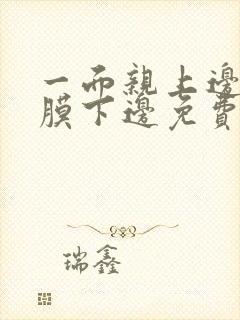 一而親上邊
膜下邊免費
瑞鑫